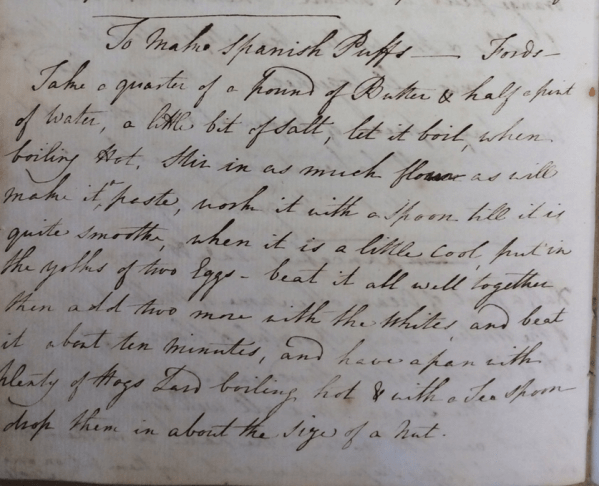 To Make Spanish Puffs — Fords —
Take a quarter of a pound of Butter & half a pint
of Water, a little bit of Salt, let it boil, when
boiling Hot, Stir in as much flour as will
make it a paste, work it with a spoon till it is
quite smoothe, when it is a little cool, put in
the yolks of two Eggs - beat it all well together
then add two more with the Whites, and beat
it about ten minutes, and have a pan with
plenty of Hogs Lard boiling hot & with a Tea spoon
drop them in about the size of a Nut.